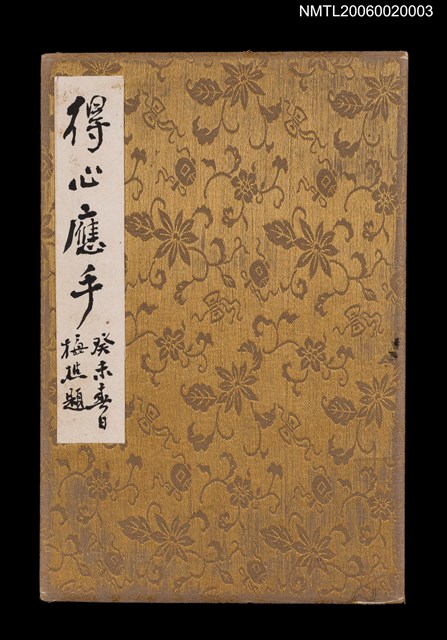 NMTL20060020003
得心應手
癸未春日
梅樵題